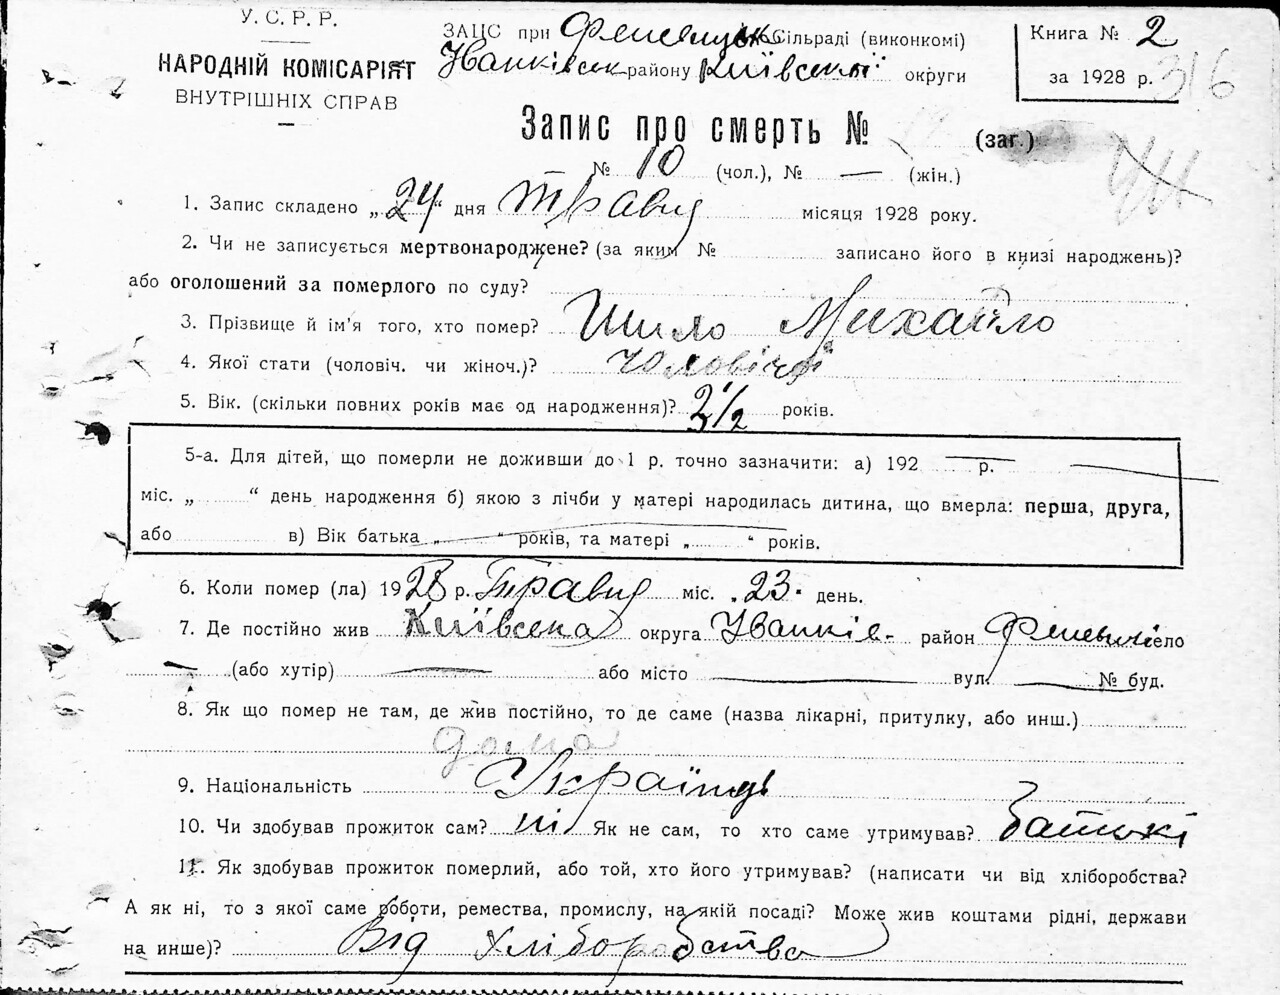 У. С. Р. Р.
НАРОДНІЙ КОМІСАРІЯТ
ВНУТРІШНІХ СПРАВ
ЗАЦС при Феневицькій Сільраді (виконкомі)
Іванківськ району Київської округи
Книга № 2
за 1928 р.
316
Запис про смерть № (заг.)
№ 10 (чол.), № — (жін.)
1. Запис складено „24“ дня Травня місяця 1928 року.
2. Чи не записується мертвонароджене? (за яким № записано його в книзі народжень)?
або оголошений за померлого по суду?
3. Прізвище й ім’я того, хто помер? Шило Михайло
4. Якої стати (чоловіч. чи жіноч.)? Чоловічої
5. Вік. (скільки повних років має од народження)? 2 1/2 років.
5-а. Для дітей, що померли не доживши до 1 р. точно зазначити: а) 192 — р. —
міс. „ “ день народження б) якою з лічби у матері народилась дитина, що вмерла: перша, друга,
або в) Вік батька „ — “ років, та матері „ “ років.
6. Коли помер (ла) 1928 р. Травня міс. „23“ день.
7. Де постійно жив Київська округа Іванків- район Феневичі село
— (або хутір) — або місто — вул. — № буд.
8. Як що помер не там, де жив постійно, то де саме (назва лікарні, притулку, або инш.)
дома
9. Національність Українець
10. Чи здобував прожиток сам? ні Як не сам, то хто саме утримував? Батькі
11. Як здобував прожиток померлий, або той, хто його утримував? (написати чи від хліборобства?
А як ні, то з якої саме роботи, ремества, промислу, на якій посаді? Може жив коштами рідні, держави
на инше)? Від хліборобства